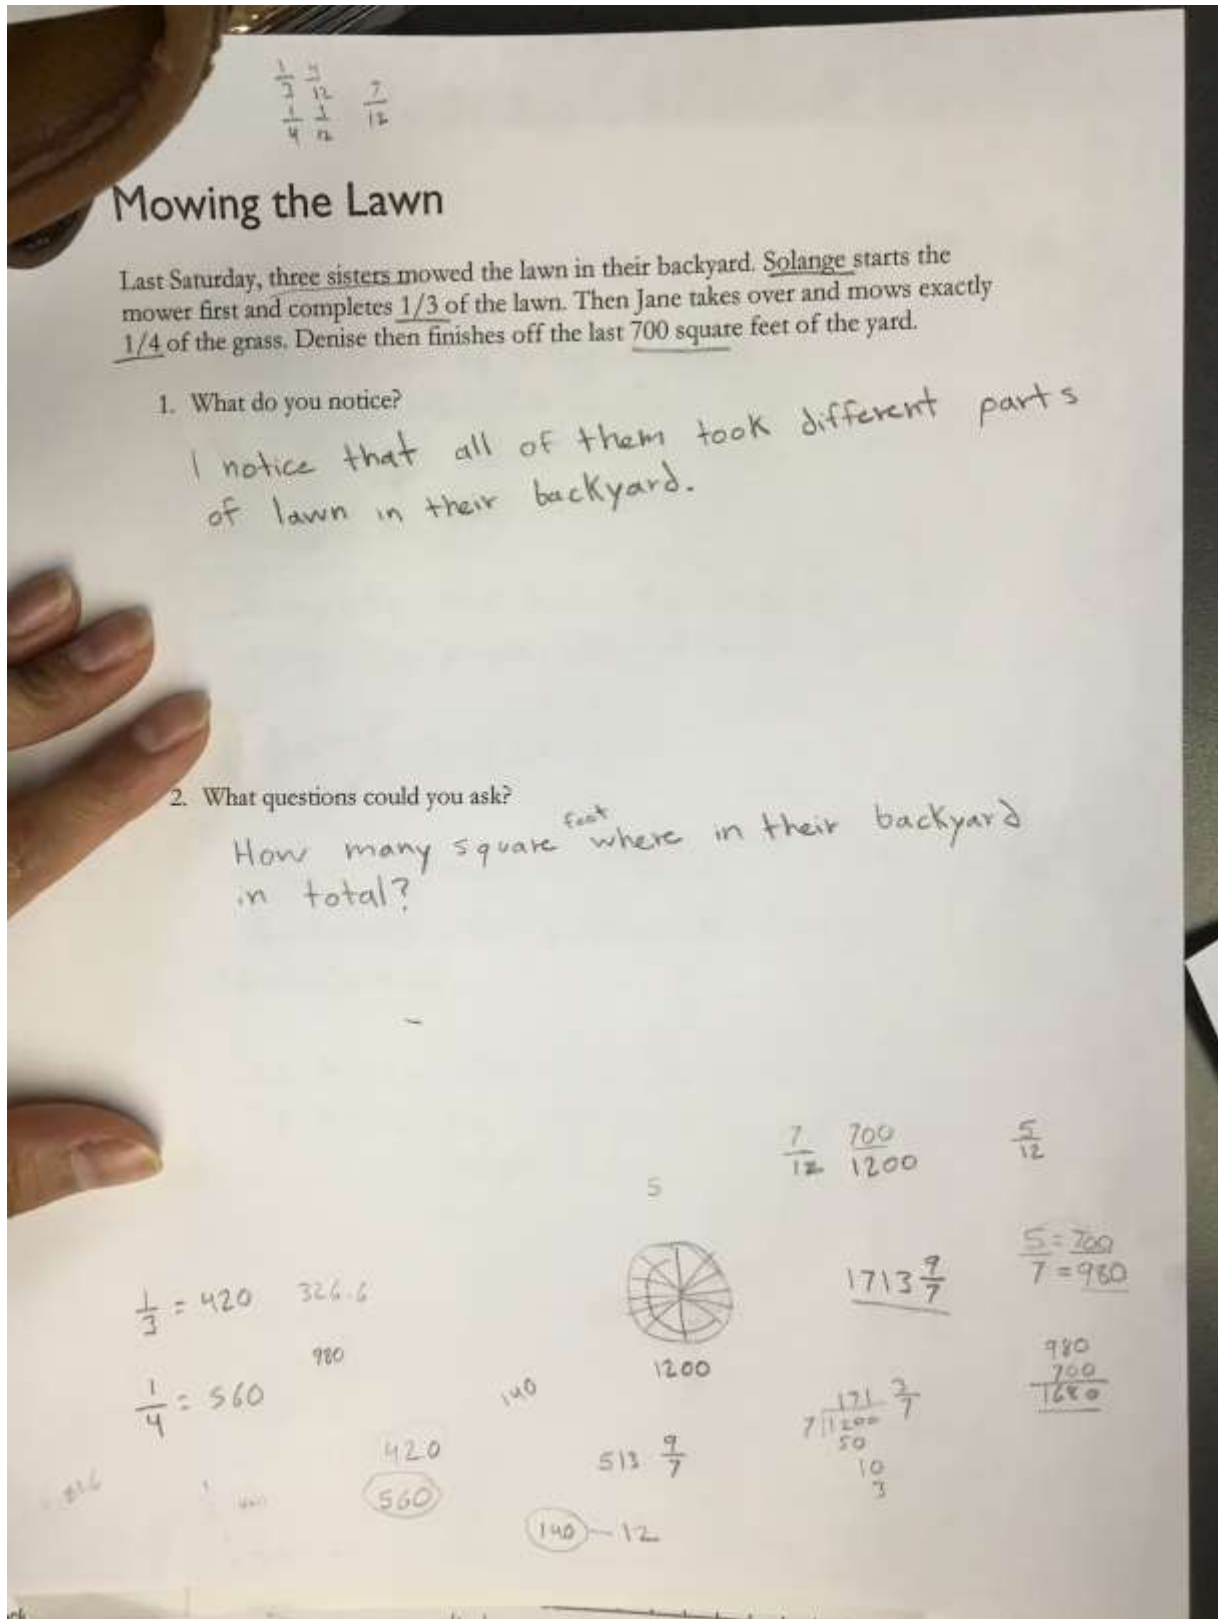 1/3 4/12
1/4 3/12 7/12
Mowing the Lawn
Last Saturday, three sisters mowed the lawn in their backyard. Solange starts the
mower first and completes 1/3 of the lawn. Then Jane takes over and mows exactly
1/4 of the grass. Denise then finishes off the last 700 square feet of the yard.
1. What do you notice?
I notice that all of them took different parts
of lawn in their backyard.
2. What questions could you ask?
How many square feet where in their backyard
in total?
7/12 700/1200 5/12
5
5 = 700
7 = 980
1713 9/7
1/3 = 420 326.6
980
1200
980
700
1680
1/4 = 560
140
171 3/7
7 1200
50
10
3
420
513 9/7
560
140 - 12